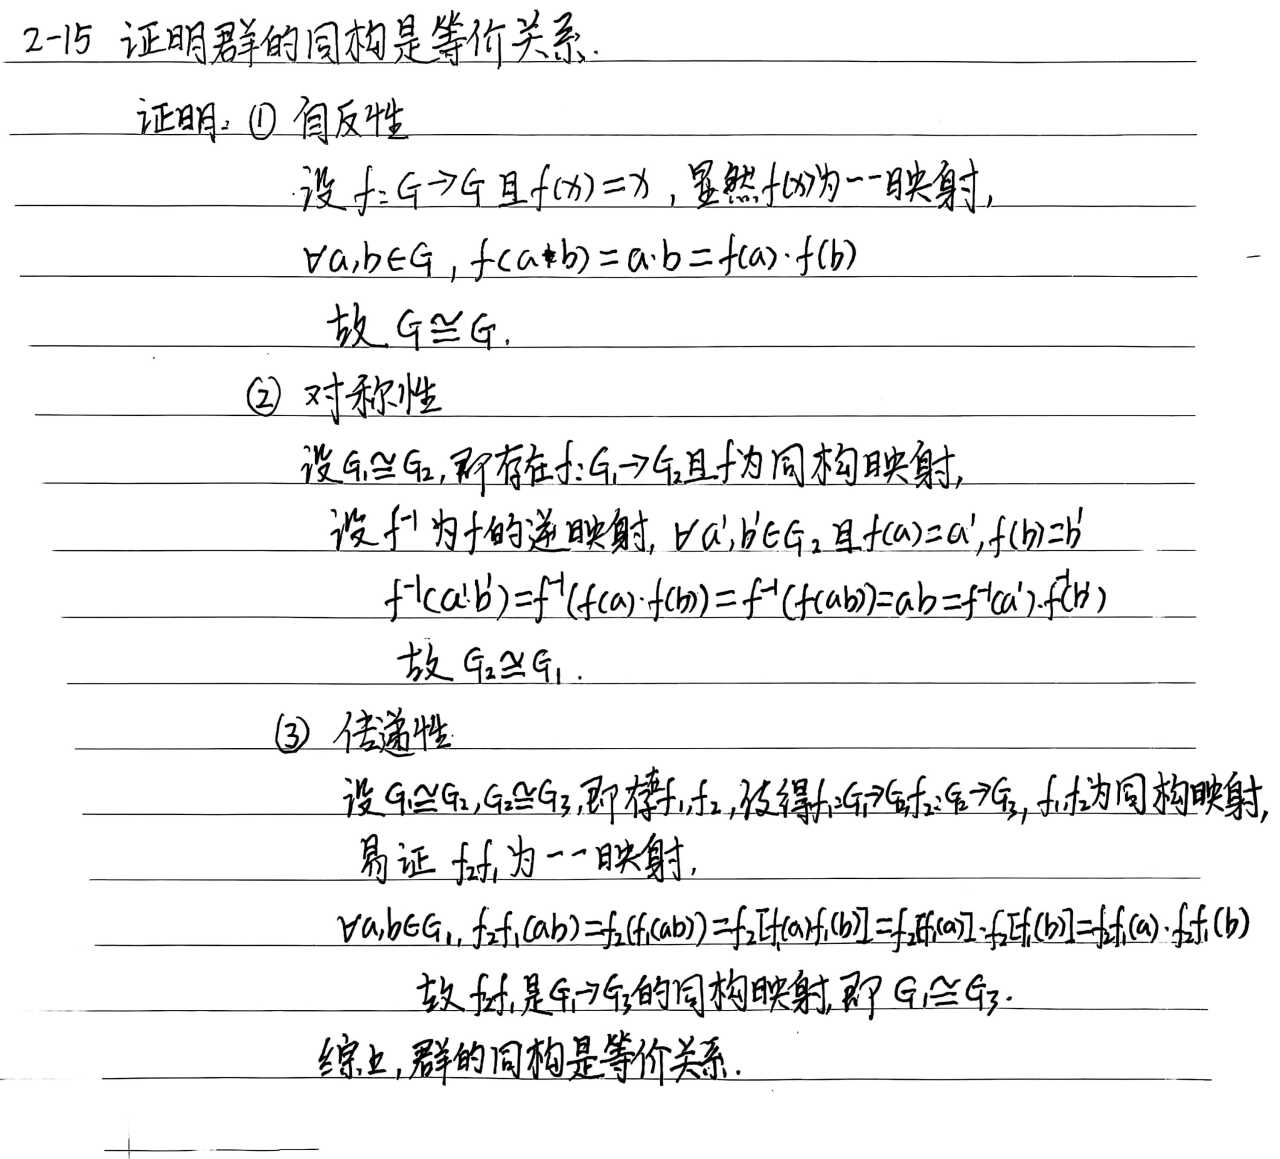 2-15 证明群的同构是等价关系.
证明: ① 自反性
设 f: G→G 且 f(x)=x , 显然 f(x)为一一映射,
∀a,b∈G , f(a*b) = a·b = f(a)·f(b)
故 G≅G.
② 对称性
设 G₁≅G₂, 即存在 f: G₁→G₂且f为同构映射,
设 f⁻¹ 为f的逆映射, ∀a',b'∈G₂ 且f(a)=a', f(b)=b'
f⁻¹(a'·b')=f⁻¹(f(a)·f(b))=f⁻¹(f(ab))=ab=f⁻¹(a')·f⁻¹(b')
故 G₂≅G₁.
③ 传递性
设 G₁≅G₂, G₂≅G₃, 即存在f₁,f₂, 使得f₁:G₁→G₂,f₂:G₂→G₃, f₁,f₂为同构映射,
易证 f₂f₁ 为一一映射,
∀a,b∈G₁, f₂f₁(ab)=f₂(f₁(ab))=f₂[f₁(a)f₁(b)]=f₂[f₁(a)]·f₂[f₁(b)]=f₂f₁(a)·f₂f₁(b)
故 f₂f₁是G₁→G₃的同构映射, 即 G₁≅G₃.
综上, 群的同构是等价关系.